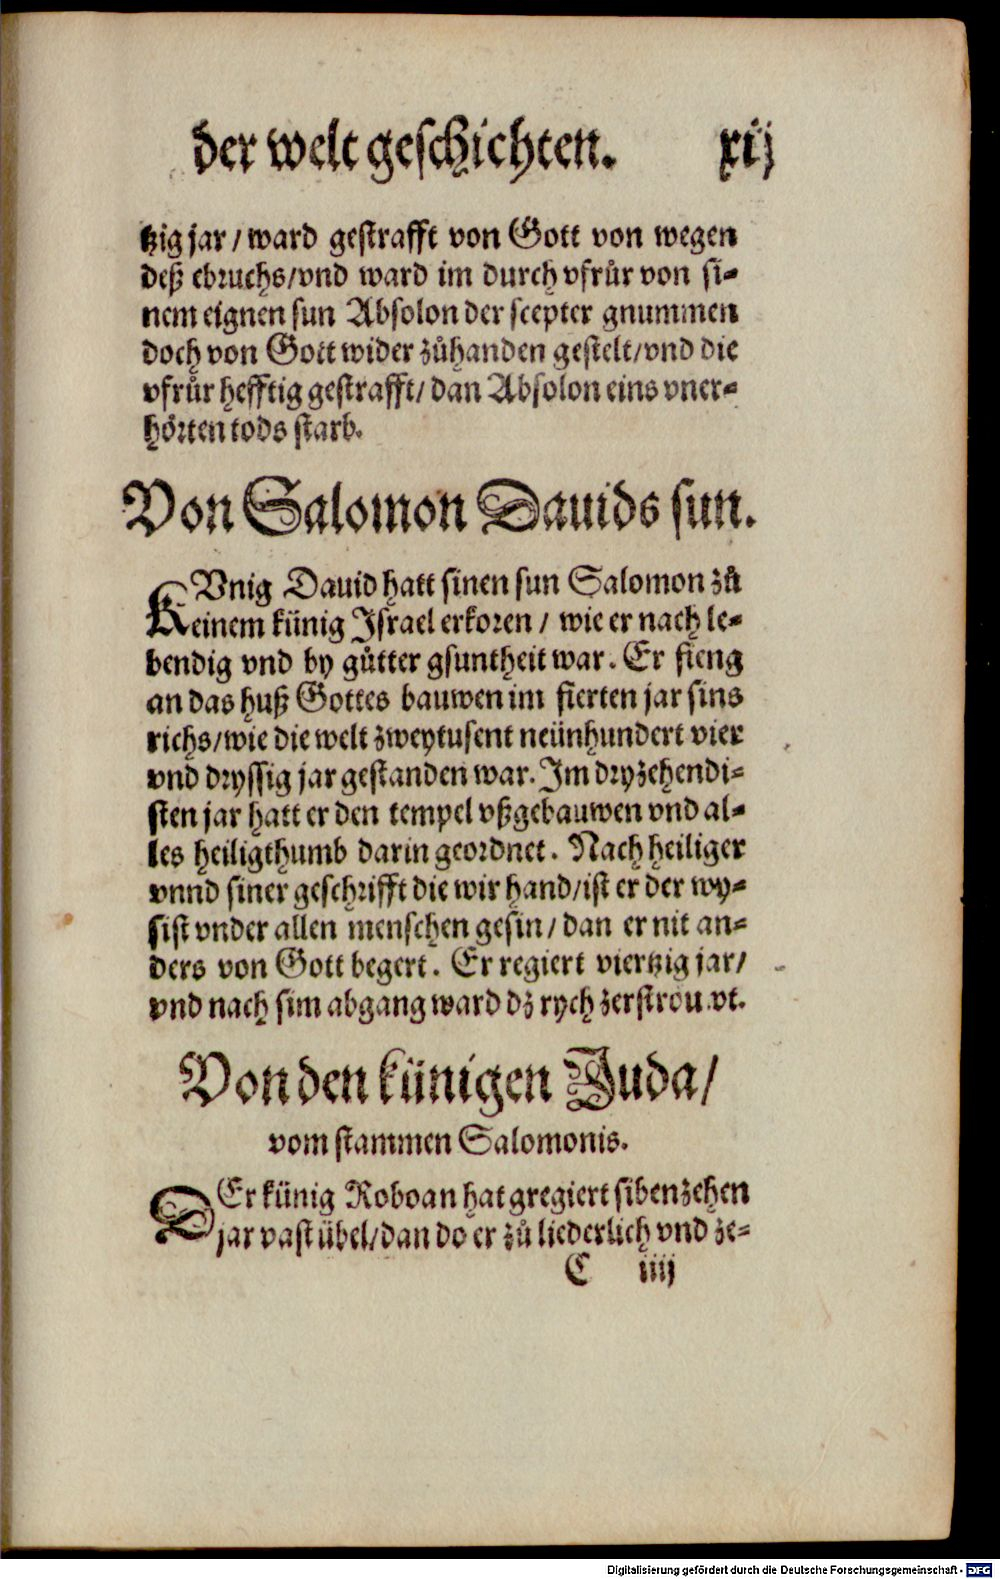 der welt geschichten. xij
tzig jar / ward gestrafft von Gott von wegen
deß ebruchs/vnd ward im durch vfrůr von si-
nem eignen sun Absolon der scepter gnummen
doch von Gott wider zůhanden gestelt/vnd die
vfrůr hefftig gestrafft/ dan Absolon eins vner-
hörten tods starb.
Von Salomon Dauids sun.
KVnig Dauid hatt sinen sun Salomon zů
einem künig Israel erkoren / wie er nach le-
bendig vnd by gůtter gsuntheit war. Er fieng
an das huß Gottes bauwen im fierten jar sins
richs/wie die welt zweytusent neünhundert vier
vnd dryssig jar gestanden war. Im dryzehendi-
sten jar hatt er den tempel vßgebauwen vnd al-
les heiligthumb darin geordnet. Nach heiliger
vnnd siner geschrifft die wir hand/ist er der wy-
sist vnder allen menschen gesin/ dan er nit an-
ders von Gott begert. Er regiert viertzig jar/
vnd nach sim abgang ward dz rych
Von den künigen Juda/
vom stammen Salomonis.
DEr künig Roboan hat gregiert sibenzehen
jar vast übel/dan do er zů liederlich vnd ze-
C iiij
Digitalisierung gefördert durch die Deutsche Forschungsgemeinschaft - DFG